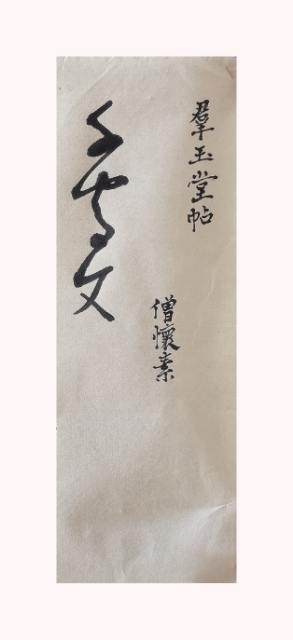 羣玉堂帖
僧懷素
千字文